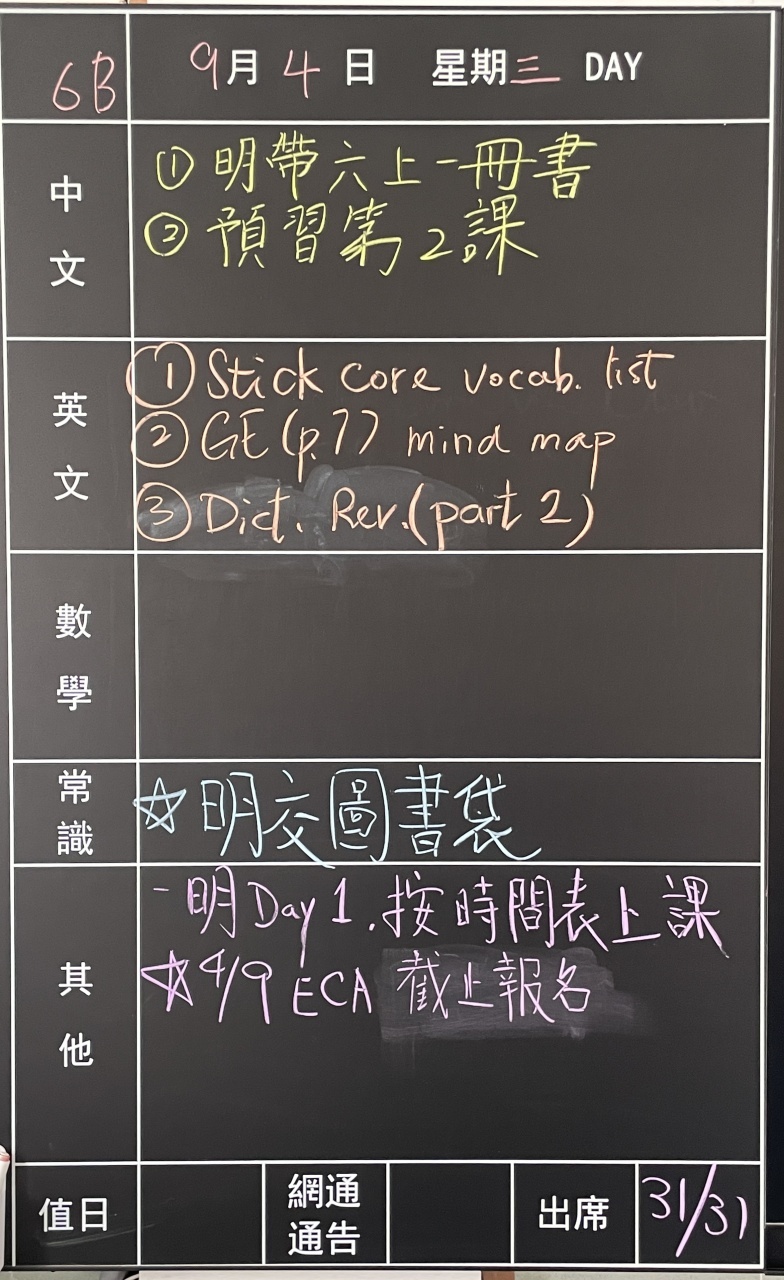 6B 9月4日 星期三 DAY
中文
① 明帶六上一冊書
② 預習第2課
英文
① Stick core vocab. list
② GE (p.7) mind map
③ Dict. Rev. (part 2)
數學
常識
☆ 明交圖書袋
其他
- 明Day 1.按時間表上課
☆ 4/9 ECA 截止報名
值日 網通通告 出席 31/31